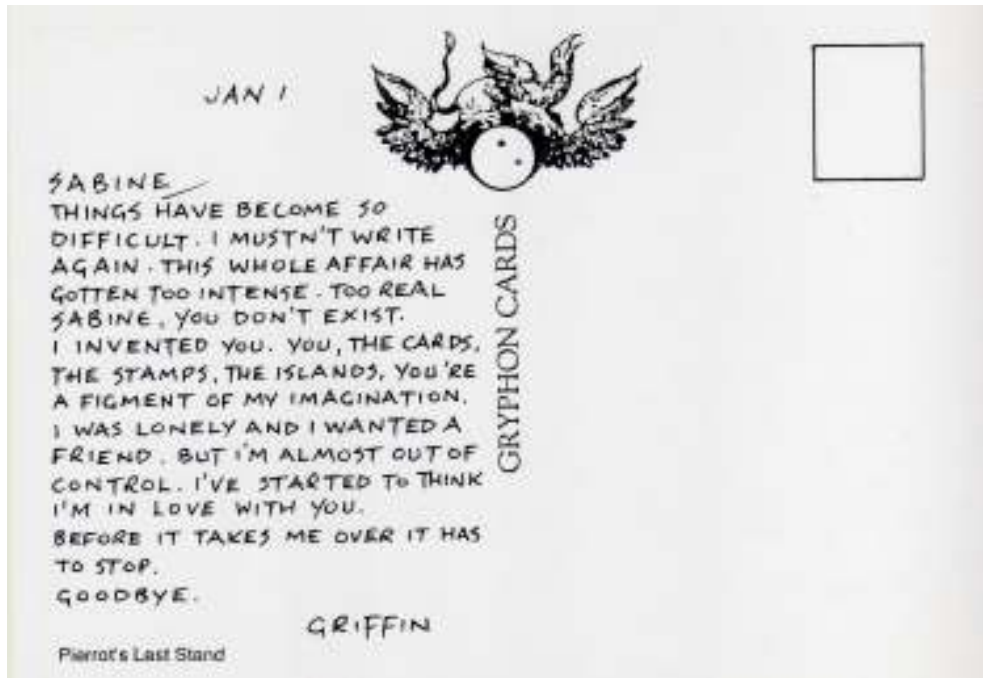 JAN 1
SABINE
THINGS HAVE BECOME SO
DIFFICULT. I MUSTN'T WRITE
AGAIN. THIS WHOLE AFFAIR HAS
GOTTEN TOO INTENSE. TOO REAL
SABINE, YOU DON'T EXIST.
I INVENTED YOU. YOU, THE CARDS,
THE STAMPS, THE ISLANDS, YOU'RE
A FIGMENT OF MY IMAGINATION.
I WAS LONELY AND I WANTED A
FRIEND. BUT I'M ALMOST OUT OF
CONTROL. I'VE STARTED TO THINK
I'M IN LOVE WITH YOU.
BEFORE IT TAKES ME OVER IT HAS
TO STOP.
GOODBYE.
GRIFFIN
Pierrot's Last Stand
GRYPHON CARDS